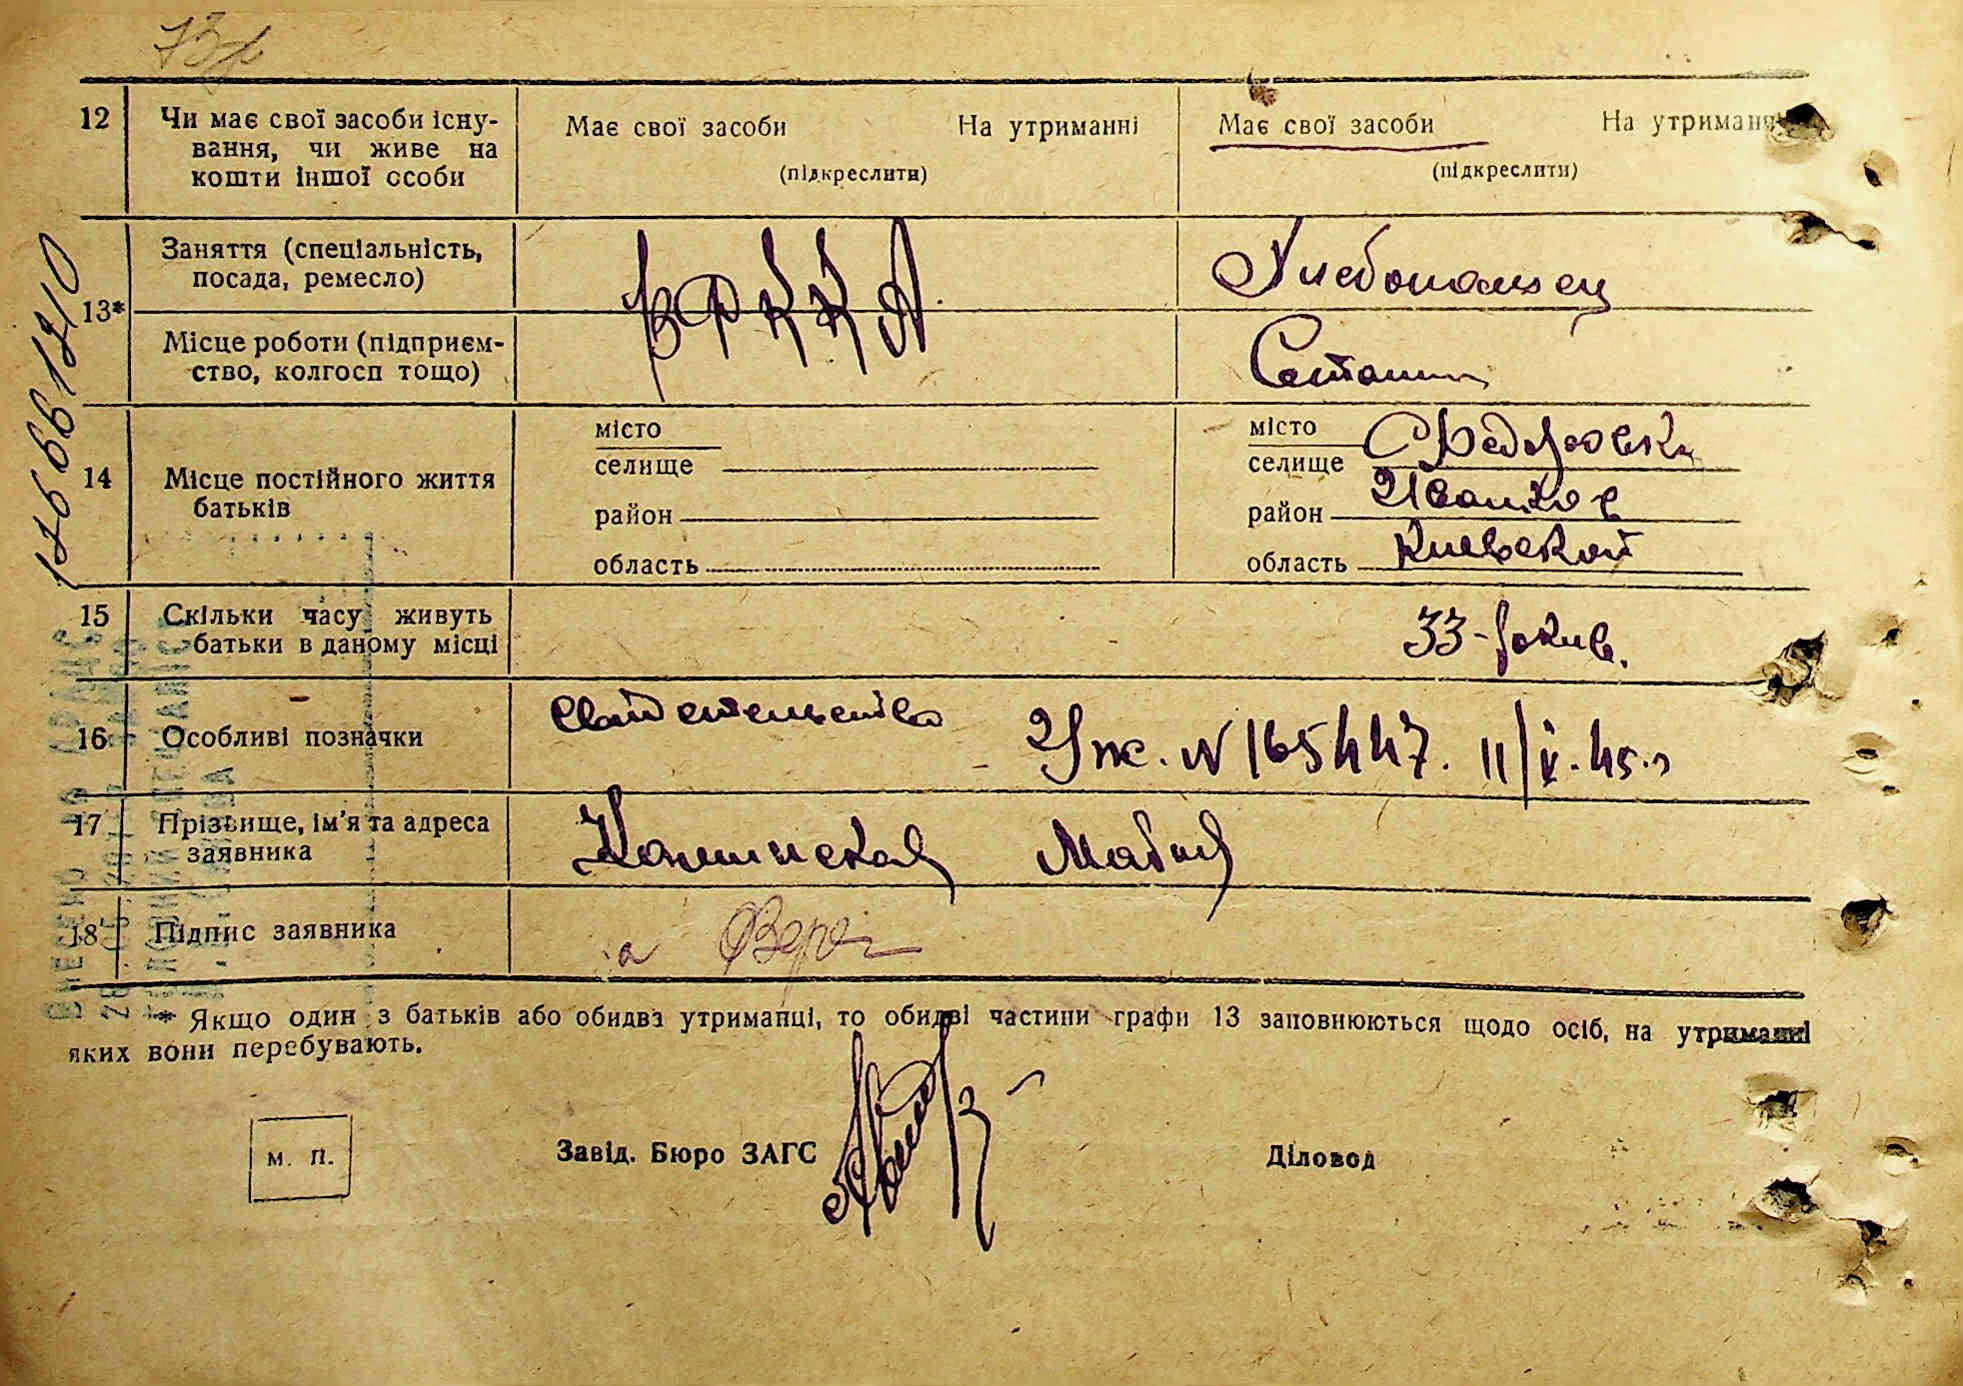 12 Чи має свої засоби існу-
вання, чи живе на
кошти іншої особи
Має свої засоби На утриманні
(підкреслити)
Має свої засоби На утриманні
(підкреслити)
13*
Заняття (спеціальність,
посада, ремесло)
в РККА.
Хлебопашец
Місце роботи (підприєм-
ство, колгосп тощо)
14 Місце постійного життя
батьків
місто
селище
район
область
місто
селище
С Федоровка
район Иванков
область Киевской
15 Скільки часу живуть
батьки в даному місці
33-років.
16 Особливі позначки
Свидетельство
УЖ. N 165447. 11/V-45 г
17 Прізвище, ім'я та адреса
заявника
Мария
18 Підпис заявника
* Якщо один з батьків або обидва утриманці, то обидві частини графи 13 заповнюються щодо осіб, на утриманні
яких вони перебувають.
М. П.
Завід. Бюро ЗАГС
Діловод